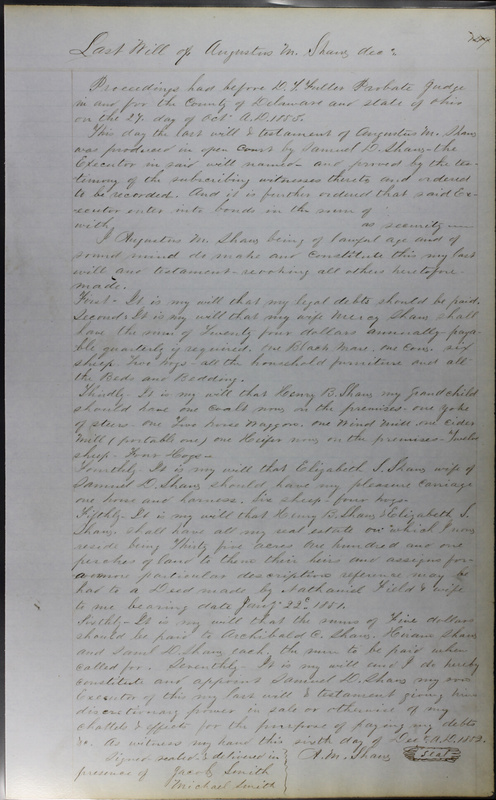 Last Will of Augustus M. Shaw, dec^d
Proceedings had before D. T. Fuller Probate Judge
in and for the County of Delaware and state of Ohio
on the 27. day of Oct A.D. 1853.
This day the last will & testament of Augustus M. Shaw
was produced in open court by Samuel D. Shaw the
Executor in said will named and proved by the tes-
timony of the subscribing witnesses thereto and ordered
to be recorded. And it is further ordered that said Ex-
ecutor enter into bonds in the sum of
with as security
I Augustus M. Shaw being of lawful age and of
sound mind do make and constitute this my last
will and testament revoking all others heretofore
made.
First- It is my will that my legal debts should be paid.
Second- It is my will that my wife Mercy Shaw shall
have the sum of Twenty four dollars annually paya-
ble quarterly if required. One Black Mare. one Cow. six
sheep. Two hogs all the household furniture and all
the Beds and Bedding.
Thirdly- It is my will that Henry B. Shaw my Grandchild
should have one Coalt now on the premises. one yoke
of steers- one Two horse Waggon. one Wind Mill one cider
Mill (portable one) one Heifer now on the premises- Twelve
sheep- Four Hogs-
Fourthly- It is my will that Elizabeth S. Shaw, wife of
Samuel D. Shaw should have my pleasure Carriage
one horse and harness. Six sheep- four hogs.
Fifthly- It is my will that Henry B. Shaw & Elizabeth S.
Shaw. shall have all my real estate on which I now
reside being Thirty five acres One hundred and one
perches of land to them their heirs and assigns for-
a more particular description reference may be
had to a Deed made by Nathaniel Field & wife
to me bearing date Jany 22^d 1851.
Sixthly- It is my will that the sums of Five dollars
should be paid to Archibald C. Shaw, Shaw
and Saml D. Shaw each, the sum to be paid when
called for. Seventhly- It is my will and I do hereby
constitute and appoint Samuel D. Shaw my sole
Executor of this my last will & testament giving him
discretionary power in sale or otherwise of my
chattels & effects for the purpose of paying my debts
&c. As witness my hand this sixth day of Dec^r A.D. 1852.
Signed sealed & delivered in } A. M. Shaw seal
presence of Jacob Smith
Michael Smith